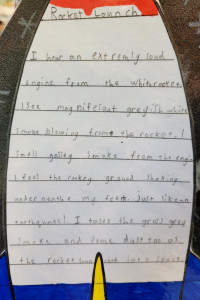 Rocket Launch
I hear an extremly loud
engine from the white rocket.
I see magnifersant greyish white
smoke blowing from the rocket. I
smell gassey smoke from the engin
I feel the rockey ground shaking
under neath my feet, just like an
earthquake! I taste the gross grey
smoke and some dust too as
the rocket launched into space